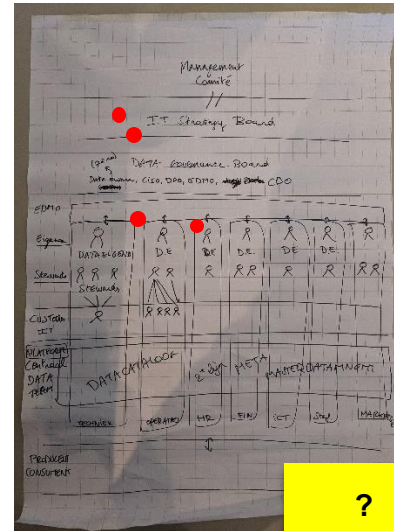 Management
Comité
//
IT Strategy Board
DATA Governance Board
Data owner, CISO, DPO, EDMO, CDO
EDMO
Eigenaar
DATA EIGENA
D.E
D.E
D.E.
D.E
D.E.
Stewards
Stewards
CUSTODIAN
IT
Central
DATA
TEAM
DATACATALOOG
META
MASTERDATAMNGMT.
TECHNIEK
OPERATIES
HR
FIN
ICT
MARK
PRODUCENT
CONSUMENT
?